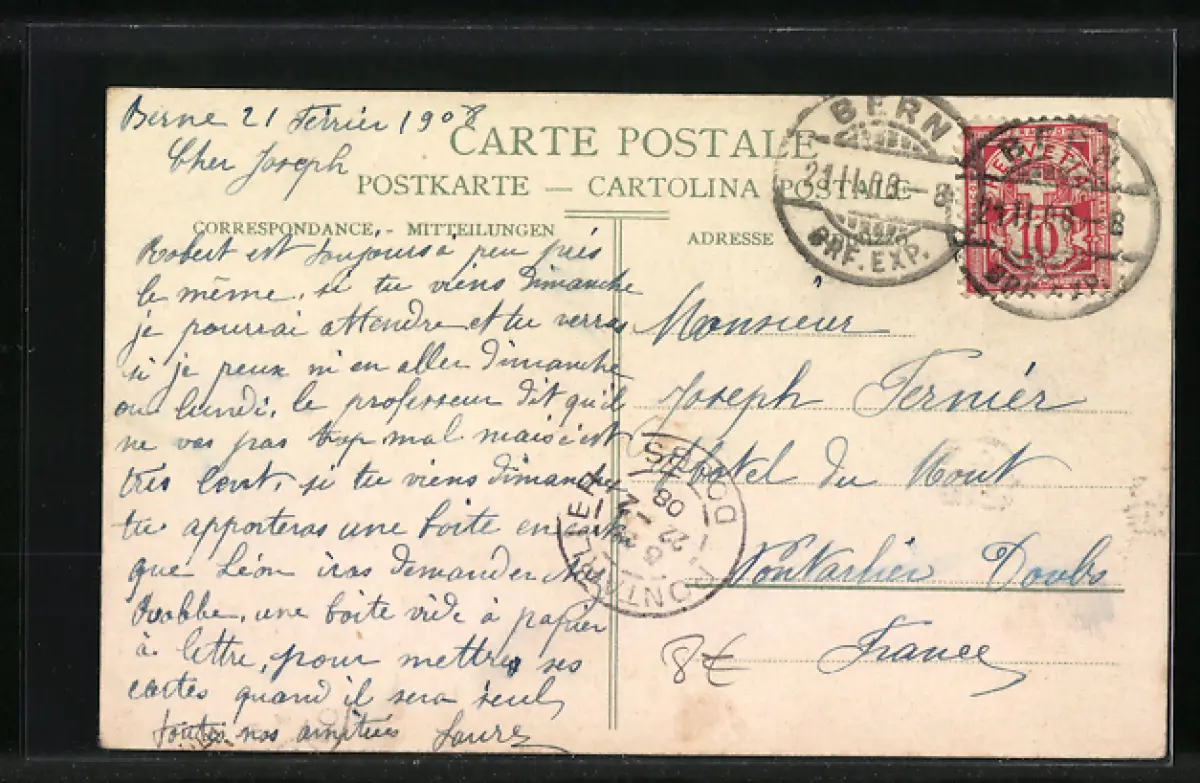 Berne 21 Février 1908
Cher Joseph
CARTE POSTALE
POSTKARTE — CARTOLINA POSTALE
CORRESPONDANCE, - MITTEILUNGEN
Robert est toujours à peu près
le même, si tu viens Dimanche
je pourrai attendre et tu verras
si je peux m'en aller Dimanche
ou lundi, le professeur dit qu'il
ne vas pas trop mal mais c'est
très lent, si tu viens dimanche
tu apporteras une boite en
que Léon iras demander
une boite vide à papier
à lettre, pour mettre ses
cartes quand il sera seul,
Toutes nos amitiés Laure
ADRESSE
Monsieur
Joseph Ternier
Hotel du Mont
Pontarlier Doubs
France
8€
BERN
21.II.08.-8
BRF.EXP.
BERN
21.II.08.-8
BRF.EXP.
HELVETIA
10
PONTARLIER DOUBS
22 -2
08